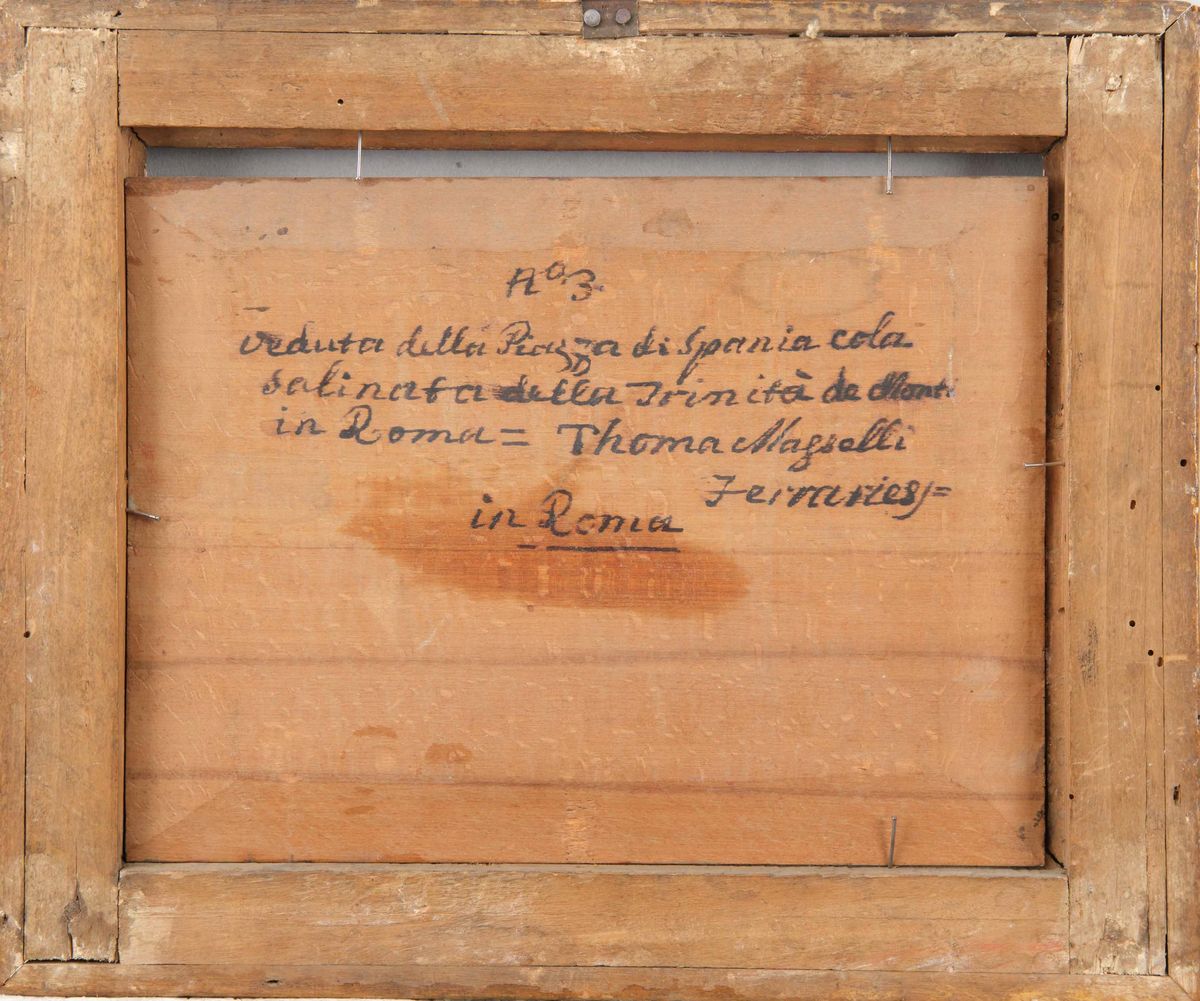 Aº 3.
Veduta della Piazza di Spania cola
salinata della Trinità de Monti
in Roma = Thoma Magselli
Ferraries)=
in Roma